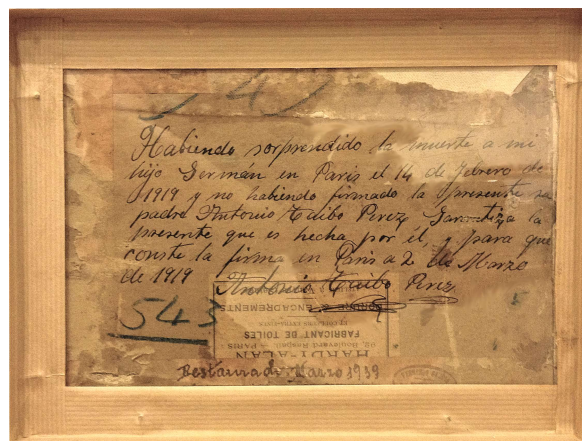 543
Habiendo sorprendido la muerte a mi
hijo Germán en Paris el 14 de Febrero de
1919 y no habiendo firmado la presente su
padre Antonio Taibo Perez, Garantiza la
presente que es hecha por él, y para que
conste la firma en Paris a 2 de Marzo
de 1919 Antonio Taibo Perez
543
& ENCADREMENTS
FABRICANT DE TOILES
92, Boulevard Raspail - PARIS
HARDY-ALAN
Restaurado Marzo 1939